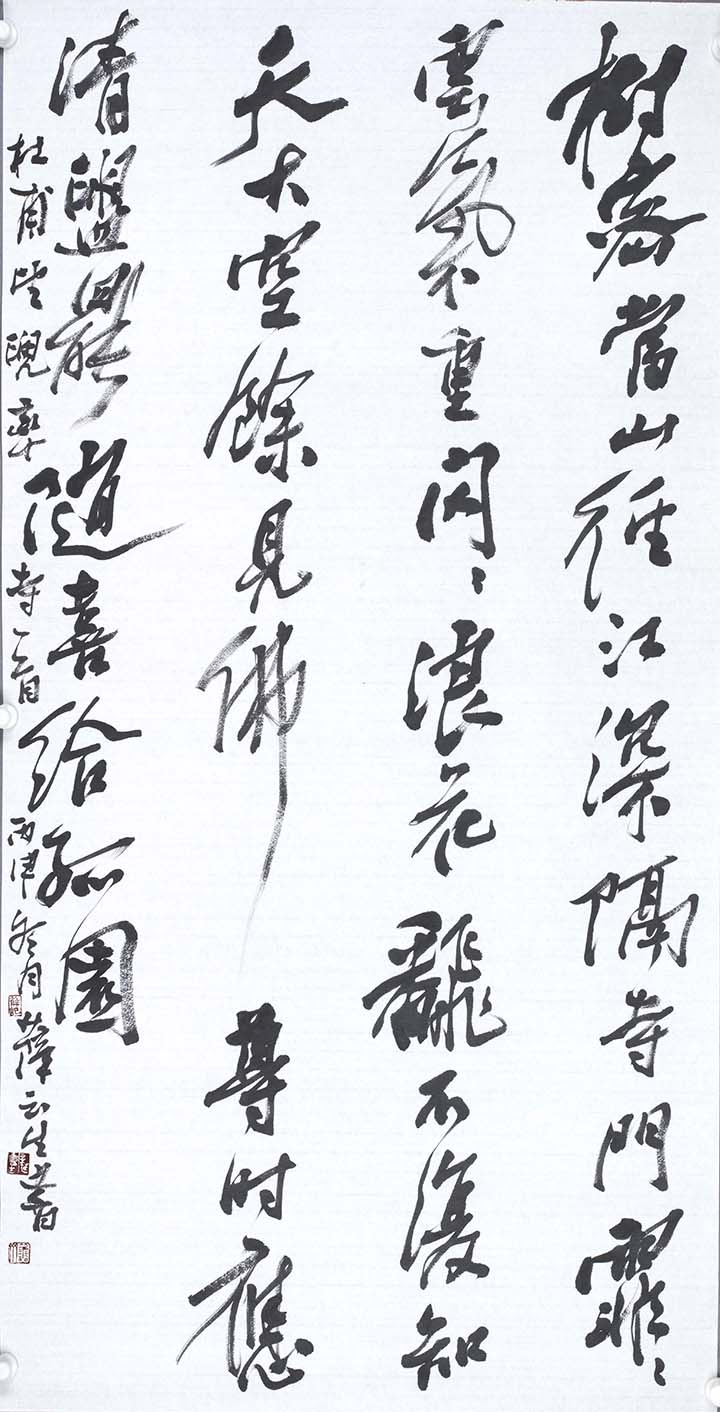 樹密當山徑江深隔寺門霏〻
雲氣不重閃〻浪花飜不復知
天大空餘見佛尊时應
清盥罷隨喜給孤園
杜甫望兜率寺一首 冬月 薛云生書